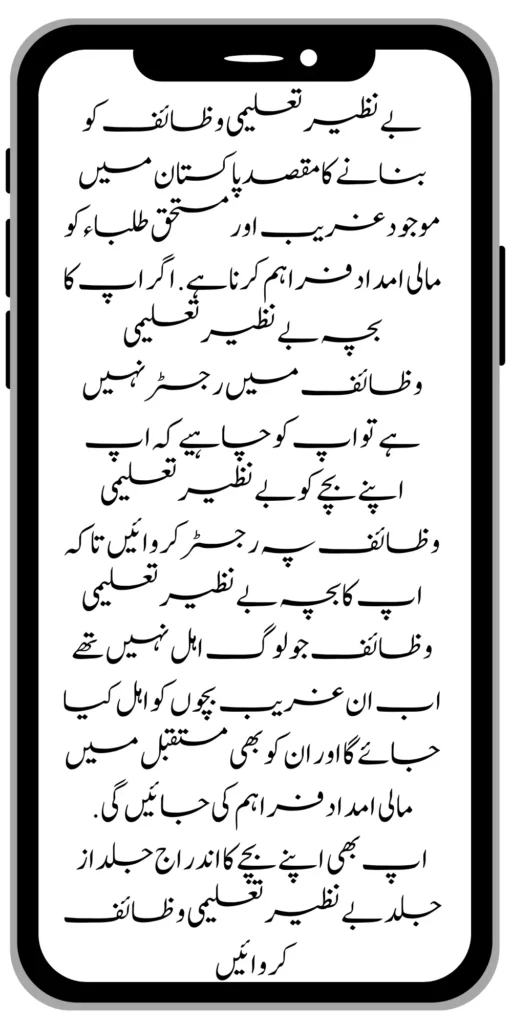 بے نظیر تعلیمی وظائف کو
بنانے کا مقصد پاکستان میں
موجود غریب اور مستحق طلباء کو
مالی امداد فراہم کرنا ہے. اگر اپ کا
بچہ بے نظیر تعلیمی
وظائف میں رجسٹر نہیں
ہے تو اپ کو چاہیے کہ اپ
اپنے بچے کو بے نظیر تعلیمی
وظائف پہ رجسٹر کروائیں تاکہ
اپ کا بچہ بے نظیر تعلیمی
وظائف جو لوگ اہل نہیں تھے
اب ان غریب بچوں کو اہل کیا
جائے گا اور ان کو بھی مستقبل میں
مالی امداد فراہم کی جائیں گی.
اپ بھی اپنے بچے کا اندراج جلد از
جلد بے نظیر تعلیمی وظائف
کروائیں